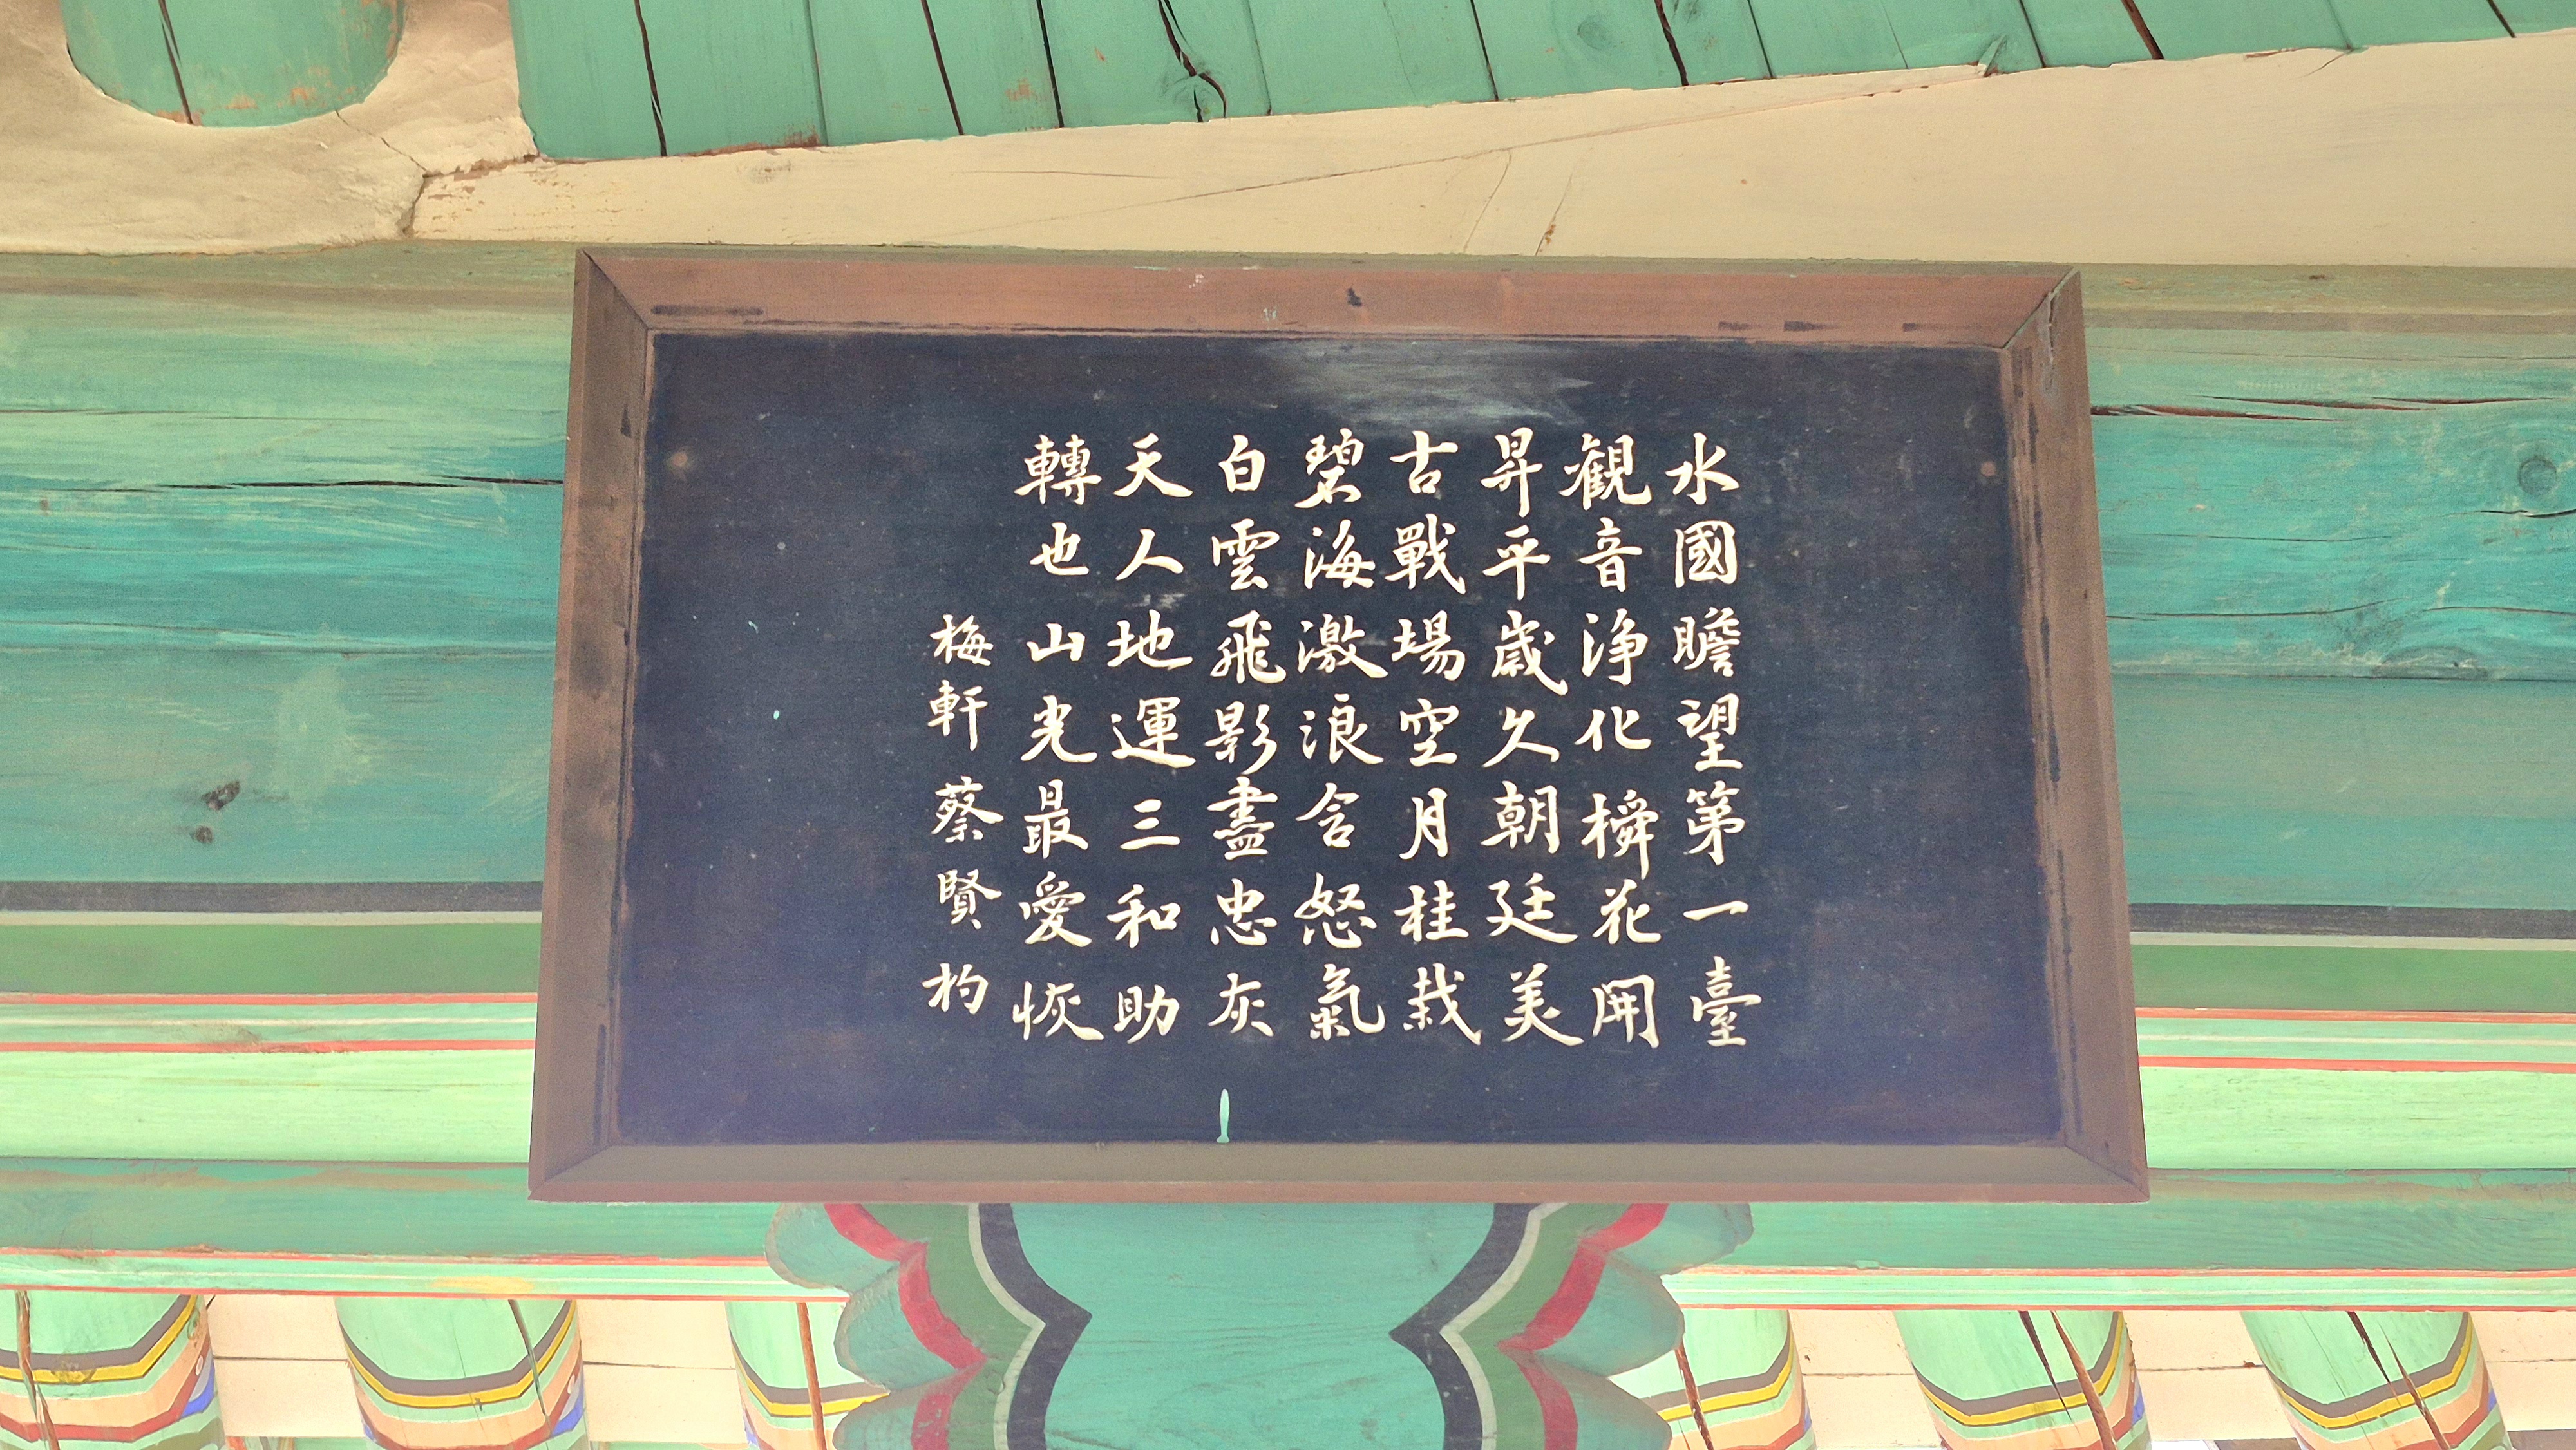 水國瞻望第一臺
観音浄化橓花開
昇平歲久朝廷美
古戰場空月桂栽
碧海激浪含怒氣
白雲飛影盡忠灰
天人地運三和助
轉也山光最愛恢
梅軒蔡賢杓